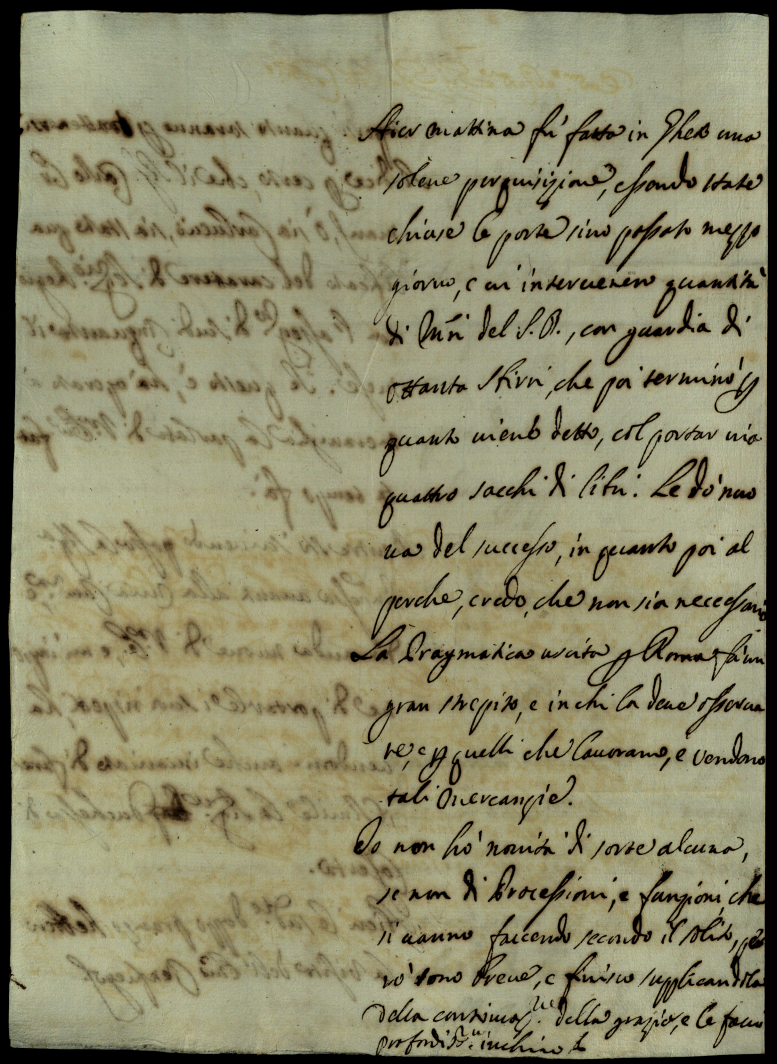 Hier mattina fu' fatta in Gheto una
solene perquisizione, essendo state
chiuse le porte sino passato mezzo
giorno, e ui interuenero quantità
di Mri del S. O., con guardia di
ottanta sbirri, che poi terminò p
quanto viene detto, col portar uia
quattro sacchi di libri. Le dò nuo
ua del successo, in quanto poi al
perche, credo, che non sia necessario
La Pragmatica uscita p Roma fà un
gran strepito, e in chi la deue osserua
re, e p quelli che lauorano, e vendono
tali mercanzie.
Io non hò nouità di sorte alcuna,
se non di Processioni, e funzioni, che
si uanno facendo secondo il solito, pe
rò sono breue, e finisco supplicandola
della continuaz.ne della grazia, e le faccio
profondiss.o inchino